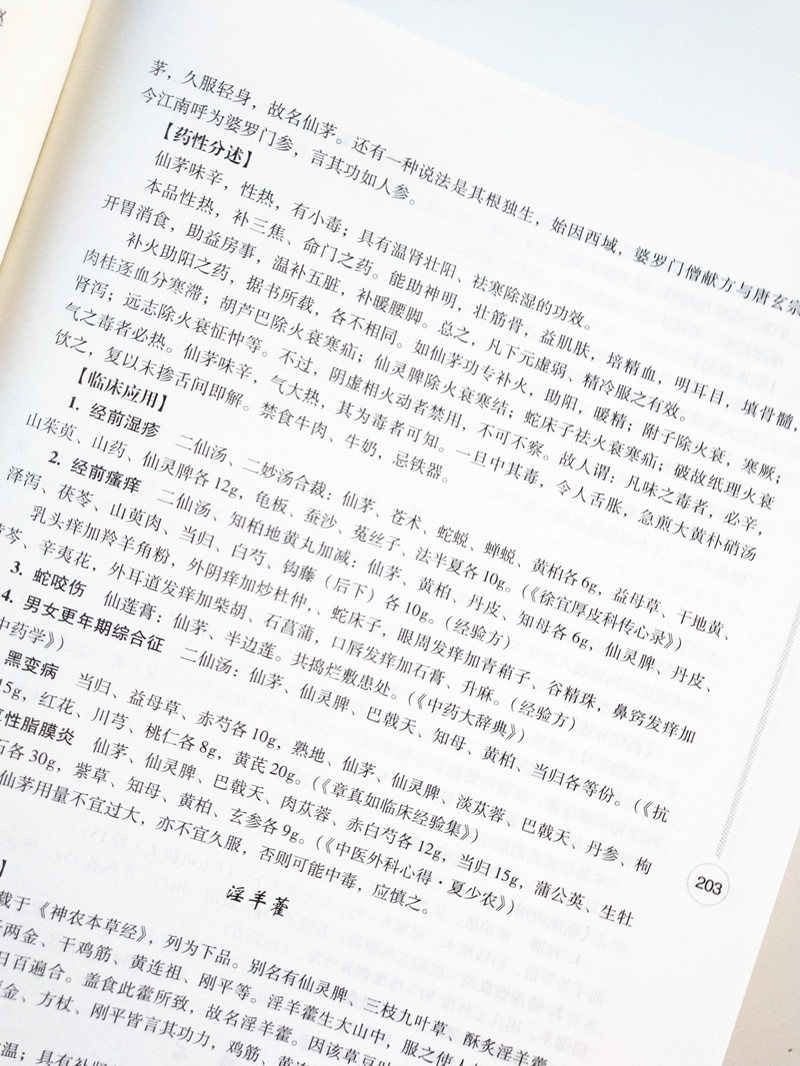 茅，久服轻身，故名仙茅。还有一种说法是其根独生，始因西域，婆罗门僧献方与唐玄宗
今江南呼为婆罗门参，言其功如人参。
【药性分述】
仙茅味辛，性热，有小毒；具有温肾壮阳、祛寒除湿的功效。
本品性热，补三焦、命门之药。能助神明，壮筋骨，益肌肤，培精血，明耳目，填骨髓，
开胃消食，助益房事，温补五脏，补暖腰脚。总之，凡下元虚弱、精冷服之有效。
补火助阳之药，据书所载，各不相同。如仙茅功专补火，助阳，暖精；附子除火衰，寒厥；
肉桂逐血分寒滞；胡芦巴除火衰寒疝；仙灵脾除火衰寒结；蛇床子祛火衰寒疝；破故纸理火衰
肾泻；远志除火衰怔忡等。不过，阴虚相火动者禁用，不可不察。故人谓：凡味之毒者，必辛，
气之毒者必热。仙茅味辛，气大热，其为毒者可知。一旦中其毒，令人舌胀，急煎大黄朴硝汤
饮之，复以末掺舌间即解。禁食牛肉、牛奶，忌铁器。
【临床应用】
1. 经前湿疹 二仙汤、二妙汤合裁：仙茅、苍术、蛇蜕、蝉蜕、黄柏各6g，益母草、干地黄、
山茱萸、山药、仙灵脾各12g，龟板、蚕沙、菟丝子、法半夏各10g。（《徐宜厚皮科传心录》）
2. 经前瘙痒 二仙汤、知柏地黄丸加减：仙茅、黄柏、丹皮、知母各6g，仙灵脾、丹皮、
泽泻、茯苓、山萸肉、当归、白芍、钩藤（后下）各10g。（经验方）
乳头痒加羚羊角粉，外阴痒加炒杜仲，、蛇床子，眼周发痒加青葙子、谷精珠，鼻窍发痒加
芩、辛夷花，外耳道发痒加柴胡、石菖蒲，口唇发痒加石膏、升麻。（经验方）
3. 蛇咬伤 仙莲膏：仙茅、半边莲。共捣烂敷患处。（《中药大辞典》）
4. 男女更年期综合征 二仙汤：仙茅、仙灵脾、巴戟天、知母、黄柏、当归各等份。（《抗
中药学》）
黑变病 当归、益母草、赤芍各10g，熟地、仙茅、仙灵脾、淡苁蓉、巴戟天、丹参、枸
15g，红花、川芎、桃仁各8g，黄芪20g。（《章真如临床经验集》）
性脂膜炎 仙茅、仙灵脾、巴戟天、肉苁蓉、赤白芍各12g，当归15g，蒲公英、生牡
石各30g，紫草、知母、黄柏、玄参各9g。（《中医外科心得·夏少农》）
仙茅用量不宜过大，亦不宜久服，否则可能中毒，应慎之。
203
淫羊藿
】
载于《神农本草经》，列为下品。别名有仙灵脾、三枝九叶草、酥炙淫羊藿
两金、干鸡筋、黄连祖、刚平等。淫羊藿生大山中，服之使人
日百遍合。盖食此藿所致，故名淫羊藿。因该草豆叶
金、方杖、刚平皆言其功力，鸡筋、黄连
温；具有补肾